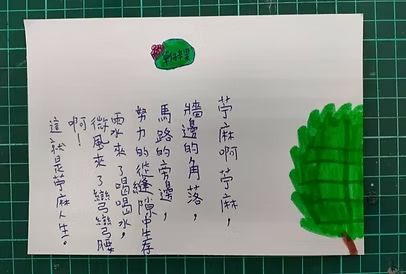 苧麻啊苧麻，
牆邊的角落，
馬路的旁邊，
努力的從縫隙中生存
雨水來了喝喝水，
微風來了彎彎腰
啊！
這就是苧麻人生。